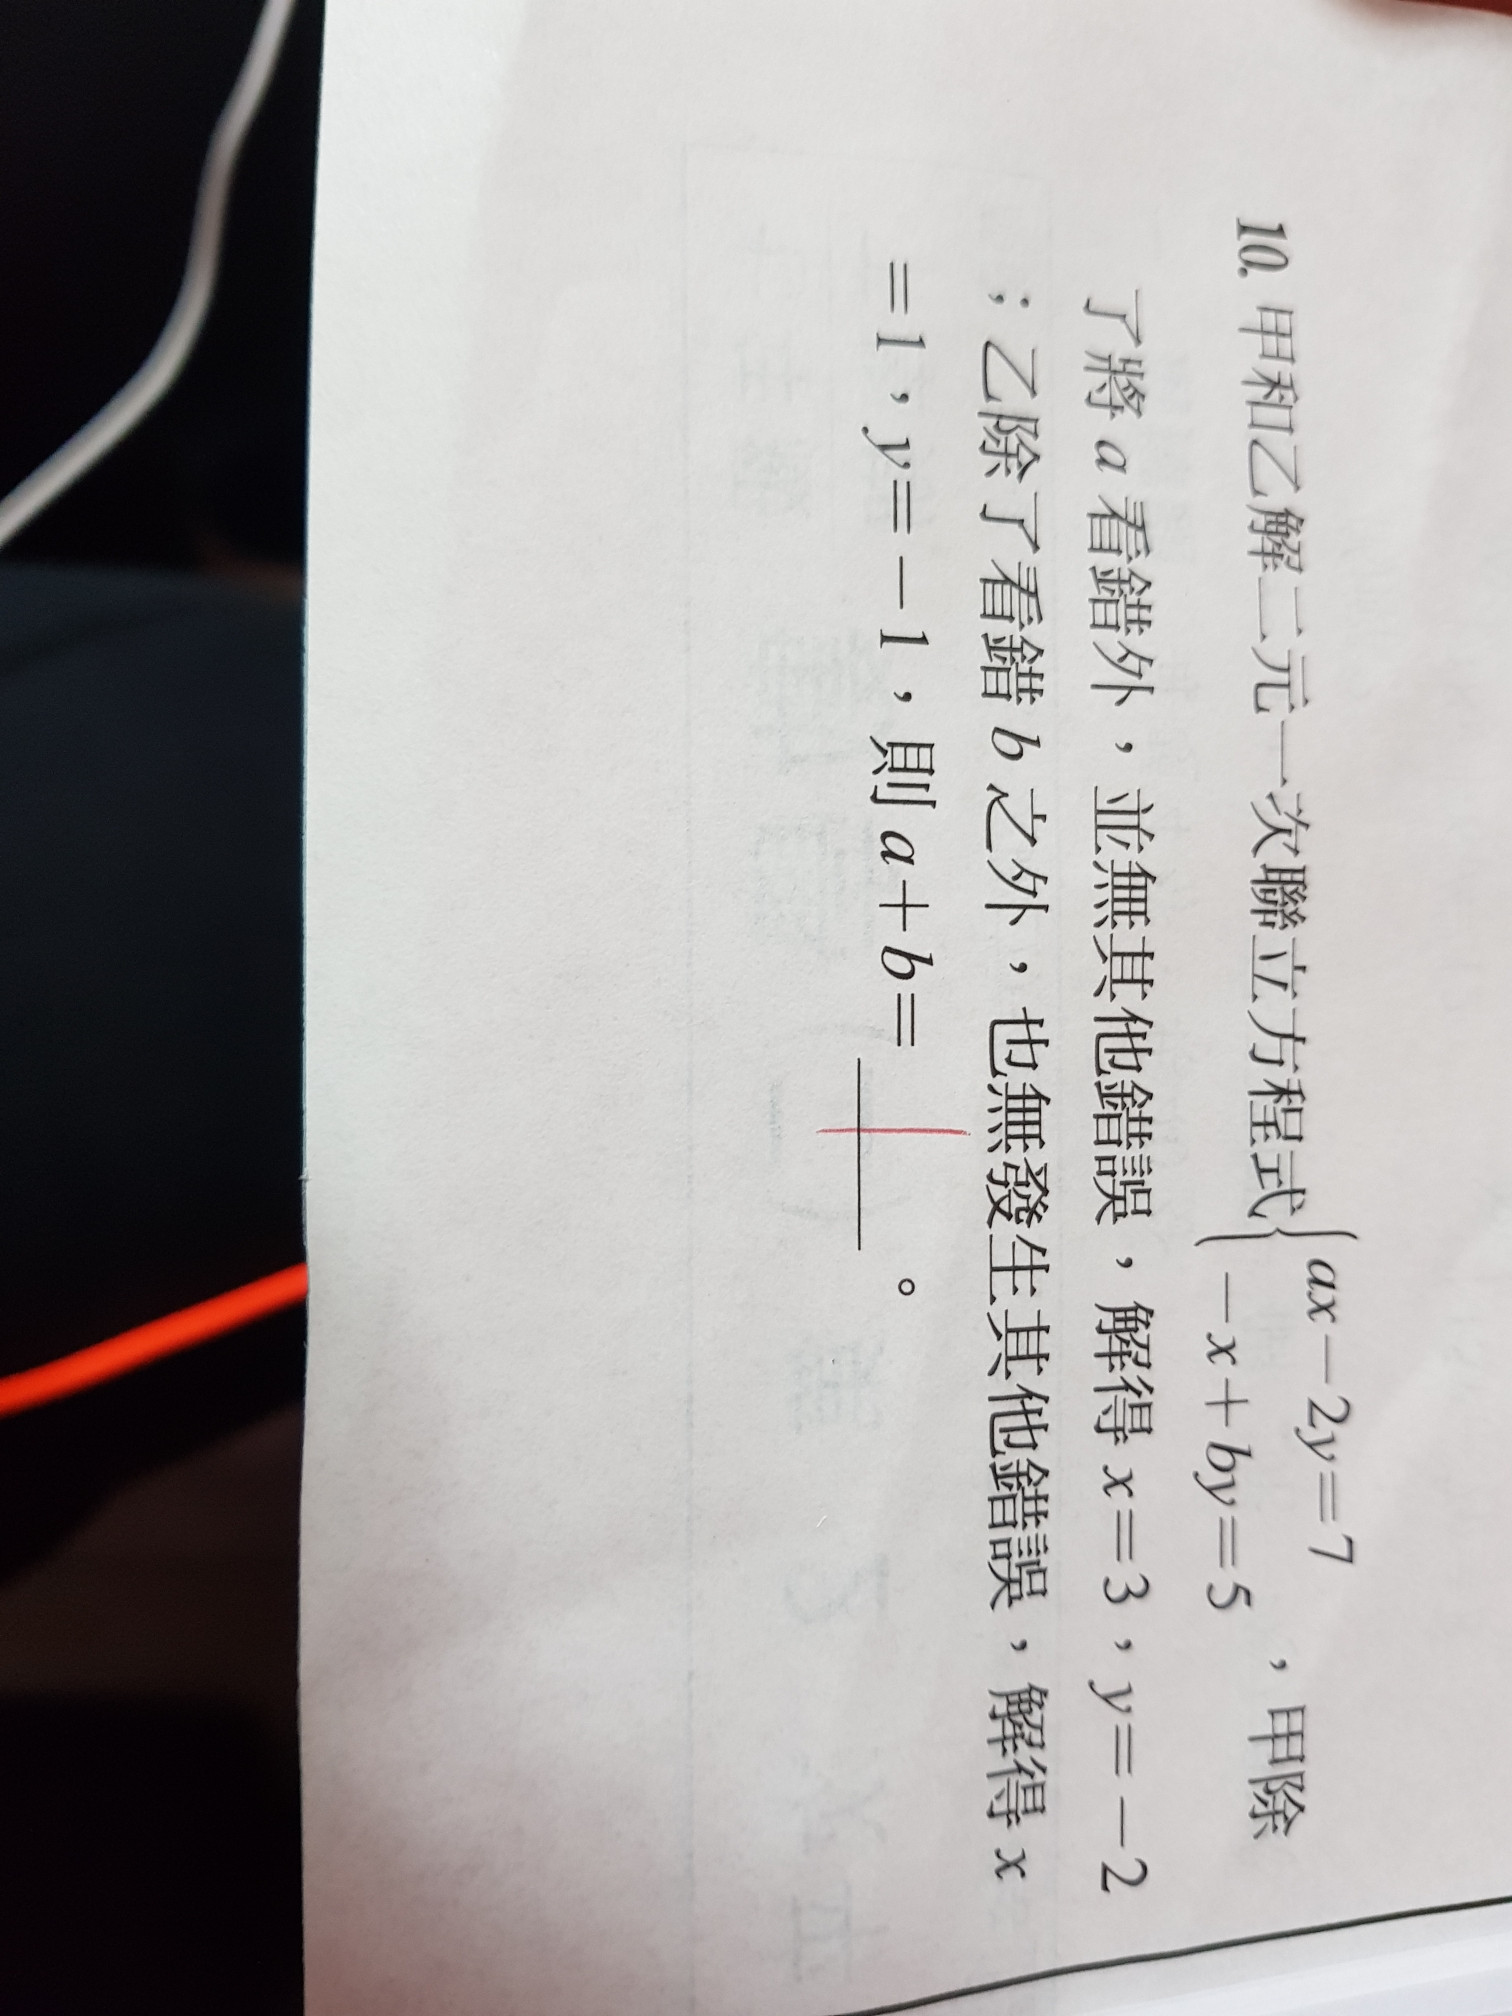 10. 甲和乙解二元一次聯立方程式{ax－2y＝7
－x＋by＝5，甲除
了將 a 看錯外，並無其他錯誤，解得 x＝3，y＝－2
；乙除了看錯 b 之外，也無發生其他錯誤，解得 x
＝1，y＝－1，則 a＋b＝＿＿＿。